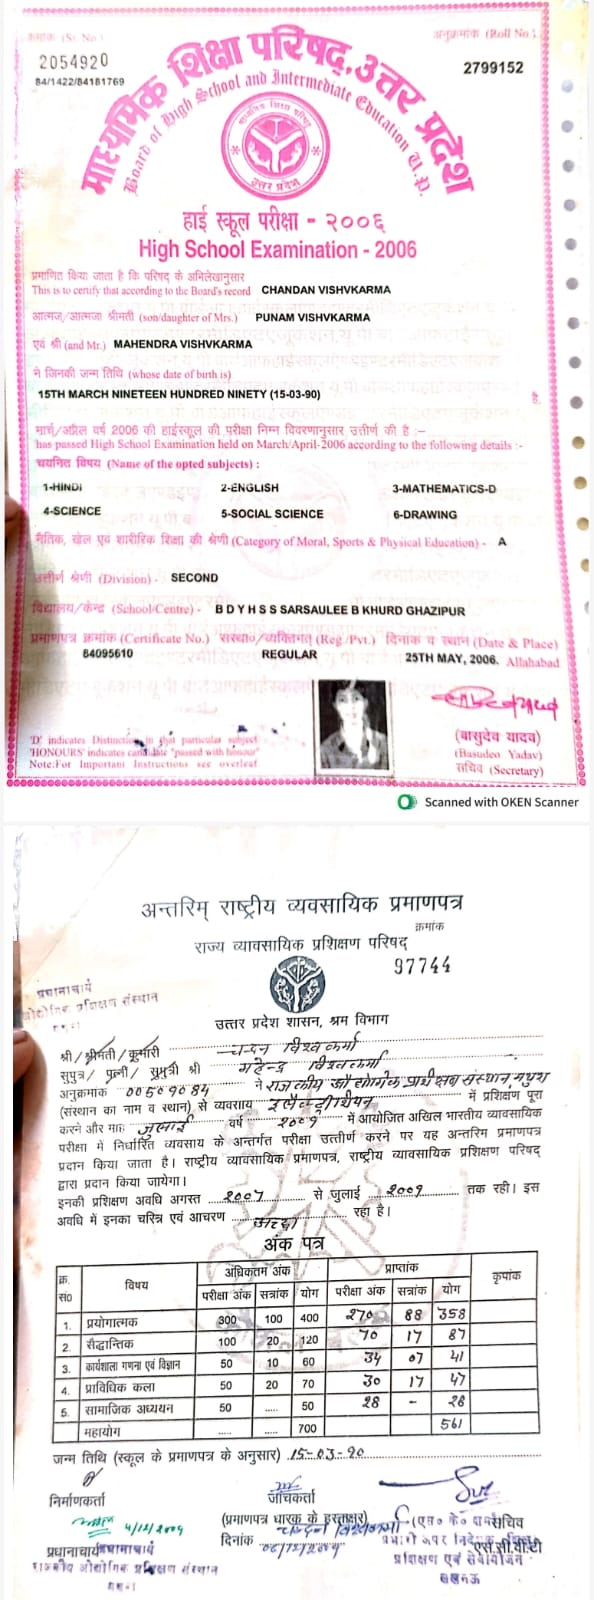 क्रमांक (Sr. No.)
अनुक्रमांक (Roll No.)
2054920
2799152
84/1422/84181769
माध्यमिक शिक्षा परिषद्, उत्तर प्रदेश
Board of High School and Intermediate Education U.P.
उत्तर प्रदेश
हाई स्कूल परीक्षा - २००६
High School Examination - 2006
प्रमाणित किया जाता है कि परिषद् के अभिलेखानुसार
This is to certify that according to the Board's record CHANDAN VISHVKARMA
आत्मज/आत्मजा श्रीमती (son/daughter of Mrs.) PUNAM VISHVKARMA
एवं श्री (and Mr.) MAHENDRA VISHVKARMA
ने जिनकी जन्म तिथि (whose date of birth is)
15TH MARCH NINETEEN HUNDRED NINETY (15-03-90) है.
मार्च/अप्रैल वर्ष 2006 की हाईस्कूल की परीक्षा निम्न विवरणानुसार उत्तीर्ण की है :-
has passed High School Examination held on March/April-2006 according to the following details :-
चयनित विषय (Name of the opted subjects) :
1-HINDI 2-ENGLISH 3-MATHEMATICS-D
4-SCIENCE 5-SOCIAL SCIENCE 6-DRAWING
नैतिक, खेल एवं शारीरिक शिक्षा की श्रेणी (Category of Moral, Sports & Physical Education) - A
उत्तीर्ण श्रेणी (Division) - SECOND
विद्यालय/केन्द्र (School/Centre) - B D Y H S S SARSAULEE B KHURD GHAZIPUR
प्रमाणपत्र क्रमांक (Certificate No.) संस्थागत/व्यक्तिगत (Reg./Pvt.) दिनांक व स्थान (Date & Place)
84095610 REGULAR 25TH MAY, 2006. Allahabad
(बासुदेव यादव)
(Basudeo Yadav)
सचिव (Secretary)
'D' indicates Distinction in that particular subject
'HONOURS' indicates candidate "passed with honour"
Note:For Important Instructions see overleaf
Scanned with OKEN Scanner
अन्तरिम् राष्ट्रीय व्यवसायिक प्रमाणपत्र
क्रमांक
राज्य व्यावसायिक प्रशिक्षण परिषद्
97744
प्रधानाचार्य
औद्योगिक प्रशिक्षण संस्थान
उत्तर प्रदेश शासन, श्रम विभाग
श्री/श्रीमती/कुमारी चन्दन विश्वकर्मा
सुपुत्र/पुत्नी/सुपुत्री श्री महेन्द्र विश्वकर्मा
अनुक्रमांक 00509084 ने राजकीय औद्योगिक प्रशिक्षण संस्थान, मथुरा
(संस्थान का नाम व स्थान) से व्यवसाय इलैक्ट्रीशियन में प्रशिक्षण पूरा
करने और माह जुलाई वर्ष २००९ में आयोजित अखिल भारतीय व्यावसायिक
परीक्षा में निर्धारित व्यवसाय के अन्तर्गत परीक्षा उत्तीर्ण करने पर यह अन्तरिम प्रमाणपत्र
प्रदान किया जाता है। राष्ट्रीय व्यावसायिक प्रमाणपत्र, राष्ट्रीय व्यावसायिक प्रशिक्षण परिषद्
द्वारा प्रदान किया जायेगा।
इनकी प्रशिक्षण अवधि अगस्त २००७ से जुलाई २००९ तक रही। इस
अवधि में इनका चरित्र एवं आचरण अच्छा रहा है।
अंक पत्र
क्र. सं० विषय अधिकतम अंक प्राप्तांक कृपांक
परीक्षा अंक सत्रांक योग परीक्षा अंक सत्रांक योग
1. प्रयोगात्मक 300 100 400 270 88 358
2. सैद्धान्तिक 100 20 120 70 17 87
3. कार्यशाला गणना एवं विज्ञान 50 10 60 34 07 41
4. प्राविधिक कला 50 20 70 30 17 47
5. सामाजिक अध्ययन 50 ..... 50 28 - 28
महायोग ..... ..... 700 561
जन्म तिथि (स्कूल के प्रमाणपत्र के अनुसार) 15-03-90
निर्माणकर्ता जांचकर्ता
(प्रमाणपत्र धारक के हस्ताक्षर) चन्दन विश्वकर्मा
सचिव
4/12/2009
दिनांक 06/12/2009
एस.सी.वी.टी
प्रधानाचार्य प्रधानाचार्य
राजकीय औद्योगिक प्रशिक्षण संस्थान
प्रशिक्षण एवं सेवायोजन
लखनऊ